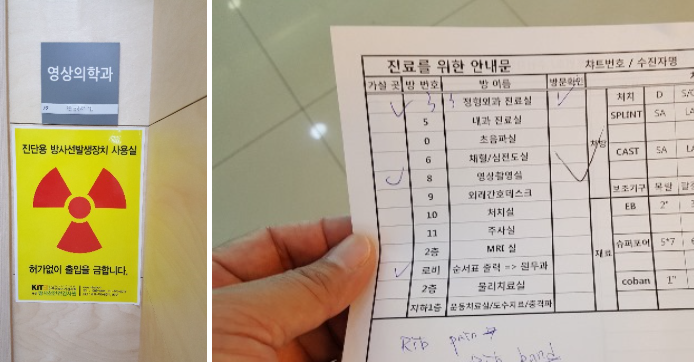 영상의학과
진단용 방사선발생장치 사용실
허가없이 출입을 금합니다.
KIT
진료를 위한 안내문 차트번호 / 수진자명
가실 곳 방 번호 방 이름 방문확인
정형외과 진료실
5 내과 진료실
0 초음파실
6 채혈/심전도실
8 영상촬영실
9 외래간호데스크
10 처치실
11 주사실
2층 MRI 실
로비 순서표 출력 => 원무과
2층 물리치료실
지하1층 운동치료실/도수치료/충격파
처치 D
SPLINT SA
처방
CAST SA
보조기구 목발
EB 2"
재료
슈퍼포어 5*7
coban 1"
Rib pain
Rib band